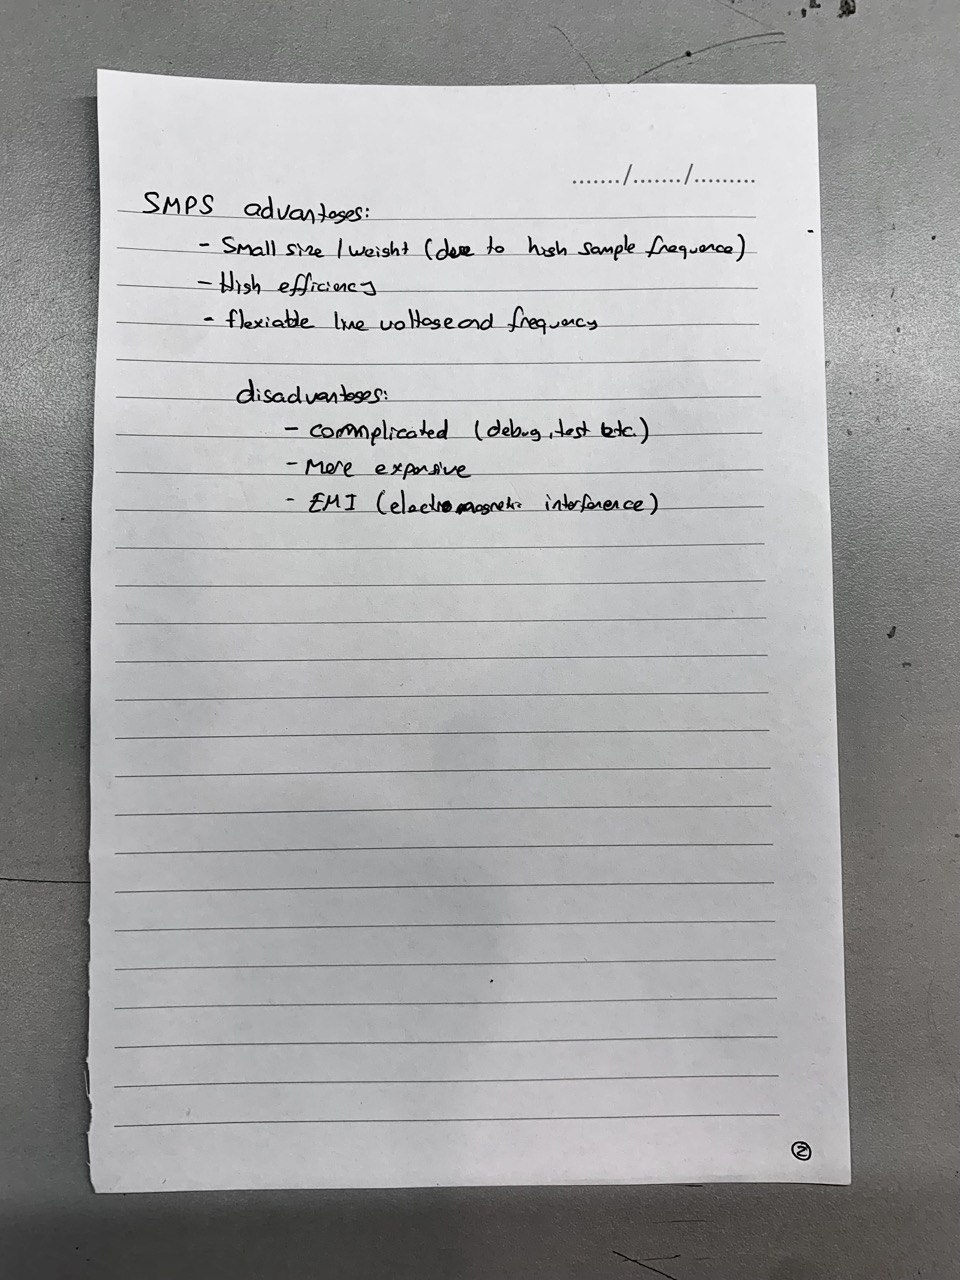 ......./......./.........
SMPS advantages:
- Small size / weight (due to high sample frequence)
- High efficiency
- flexiable line voltage and frequency
disadvantages:
- commplicated (debug, test etc.)
- More expensive
- EMI (electromagnetic interference)
2